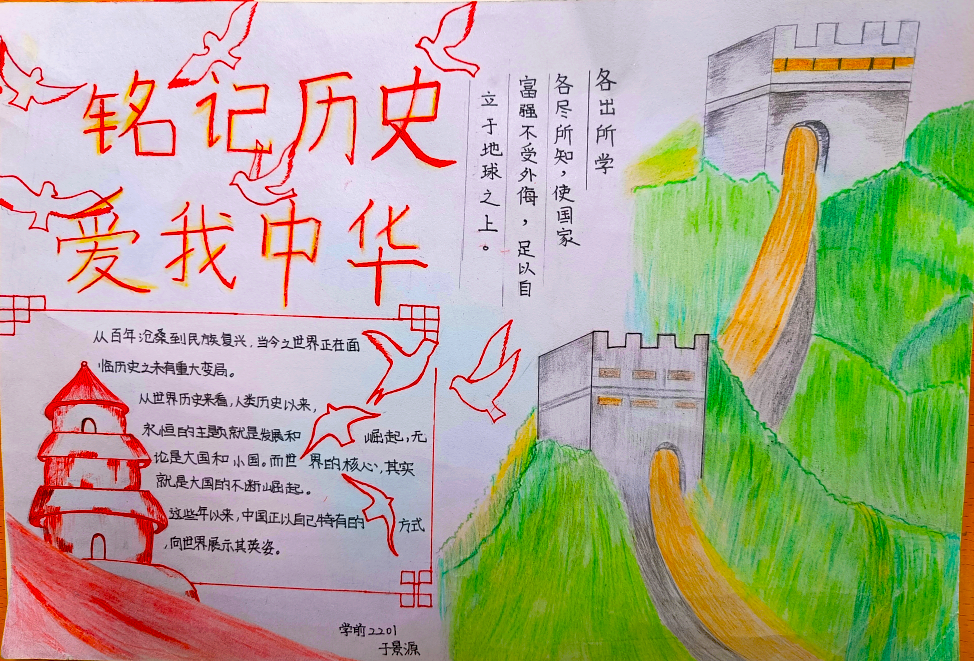 铭记历史
爱我中华
各出所学
各尽所知，使国家
富强不受外侮，足以自
立于地球之上。
从百年沧桑到民族复兴，当今之世界正在面
临历史之未有重大变局。
从世界历史来看，人类历史以来，
永恒的主题就是发展和崛起，无
论是大国和小国。而世界的核心，其实
就是大国的不断崛起。
这些年以来，中国正以自己特有的方式
，向世界展示其英姿。
学前2201
于景源